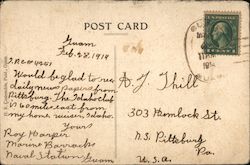 POST CARD
Guam
Feb. 28, 1914
Would be glad to rec
daily news papers from
Pittsburg. The Idaho club
is 60 miles east from
my home, Idaho.
Yours
Roy Harper
Marine Barracks
Naval Station Guam
A. J. Thill
303 Hemlock St.
N.S. Pittsburg
Pa.
U.S.A.